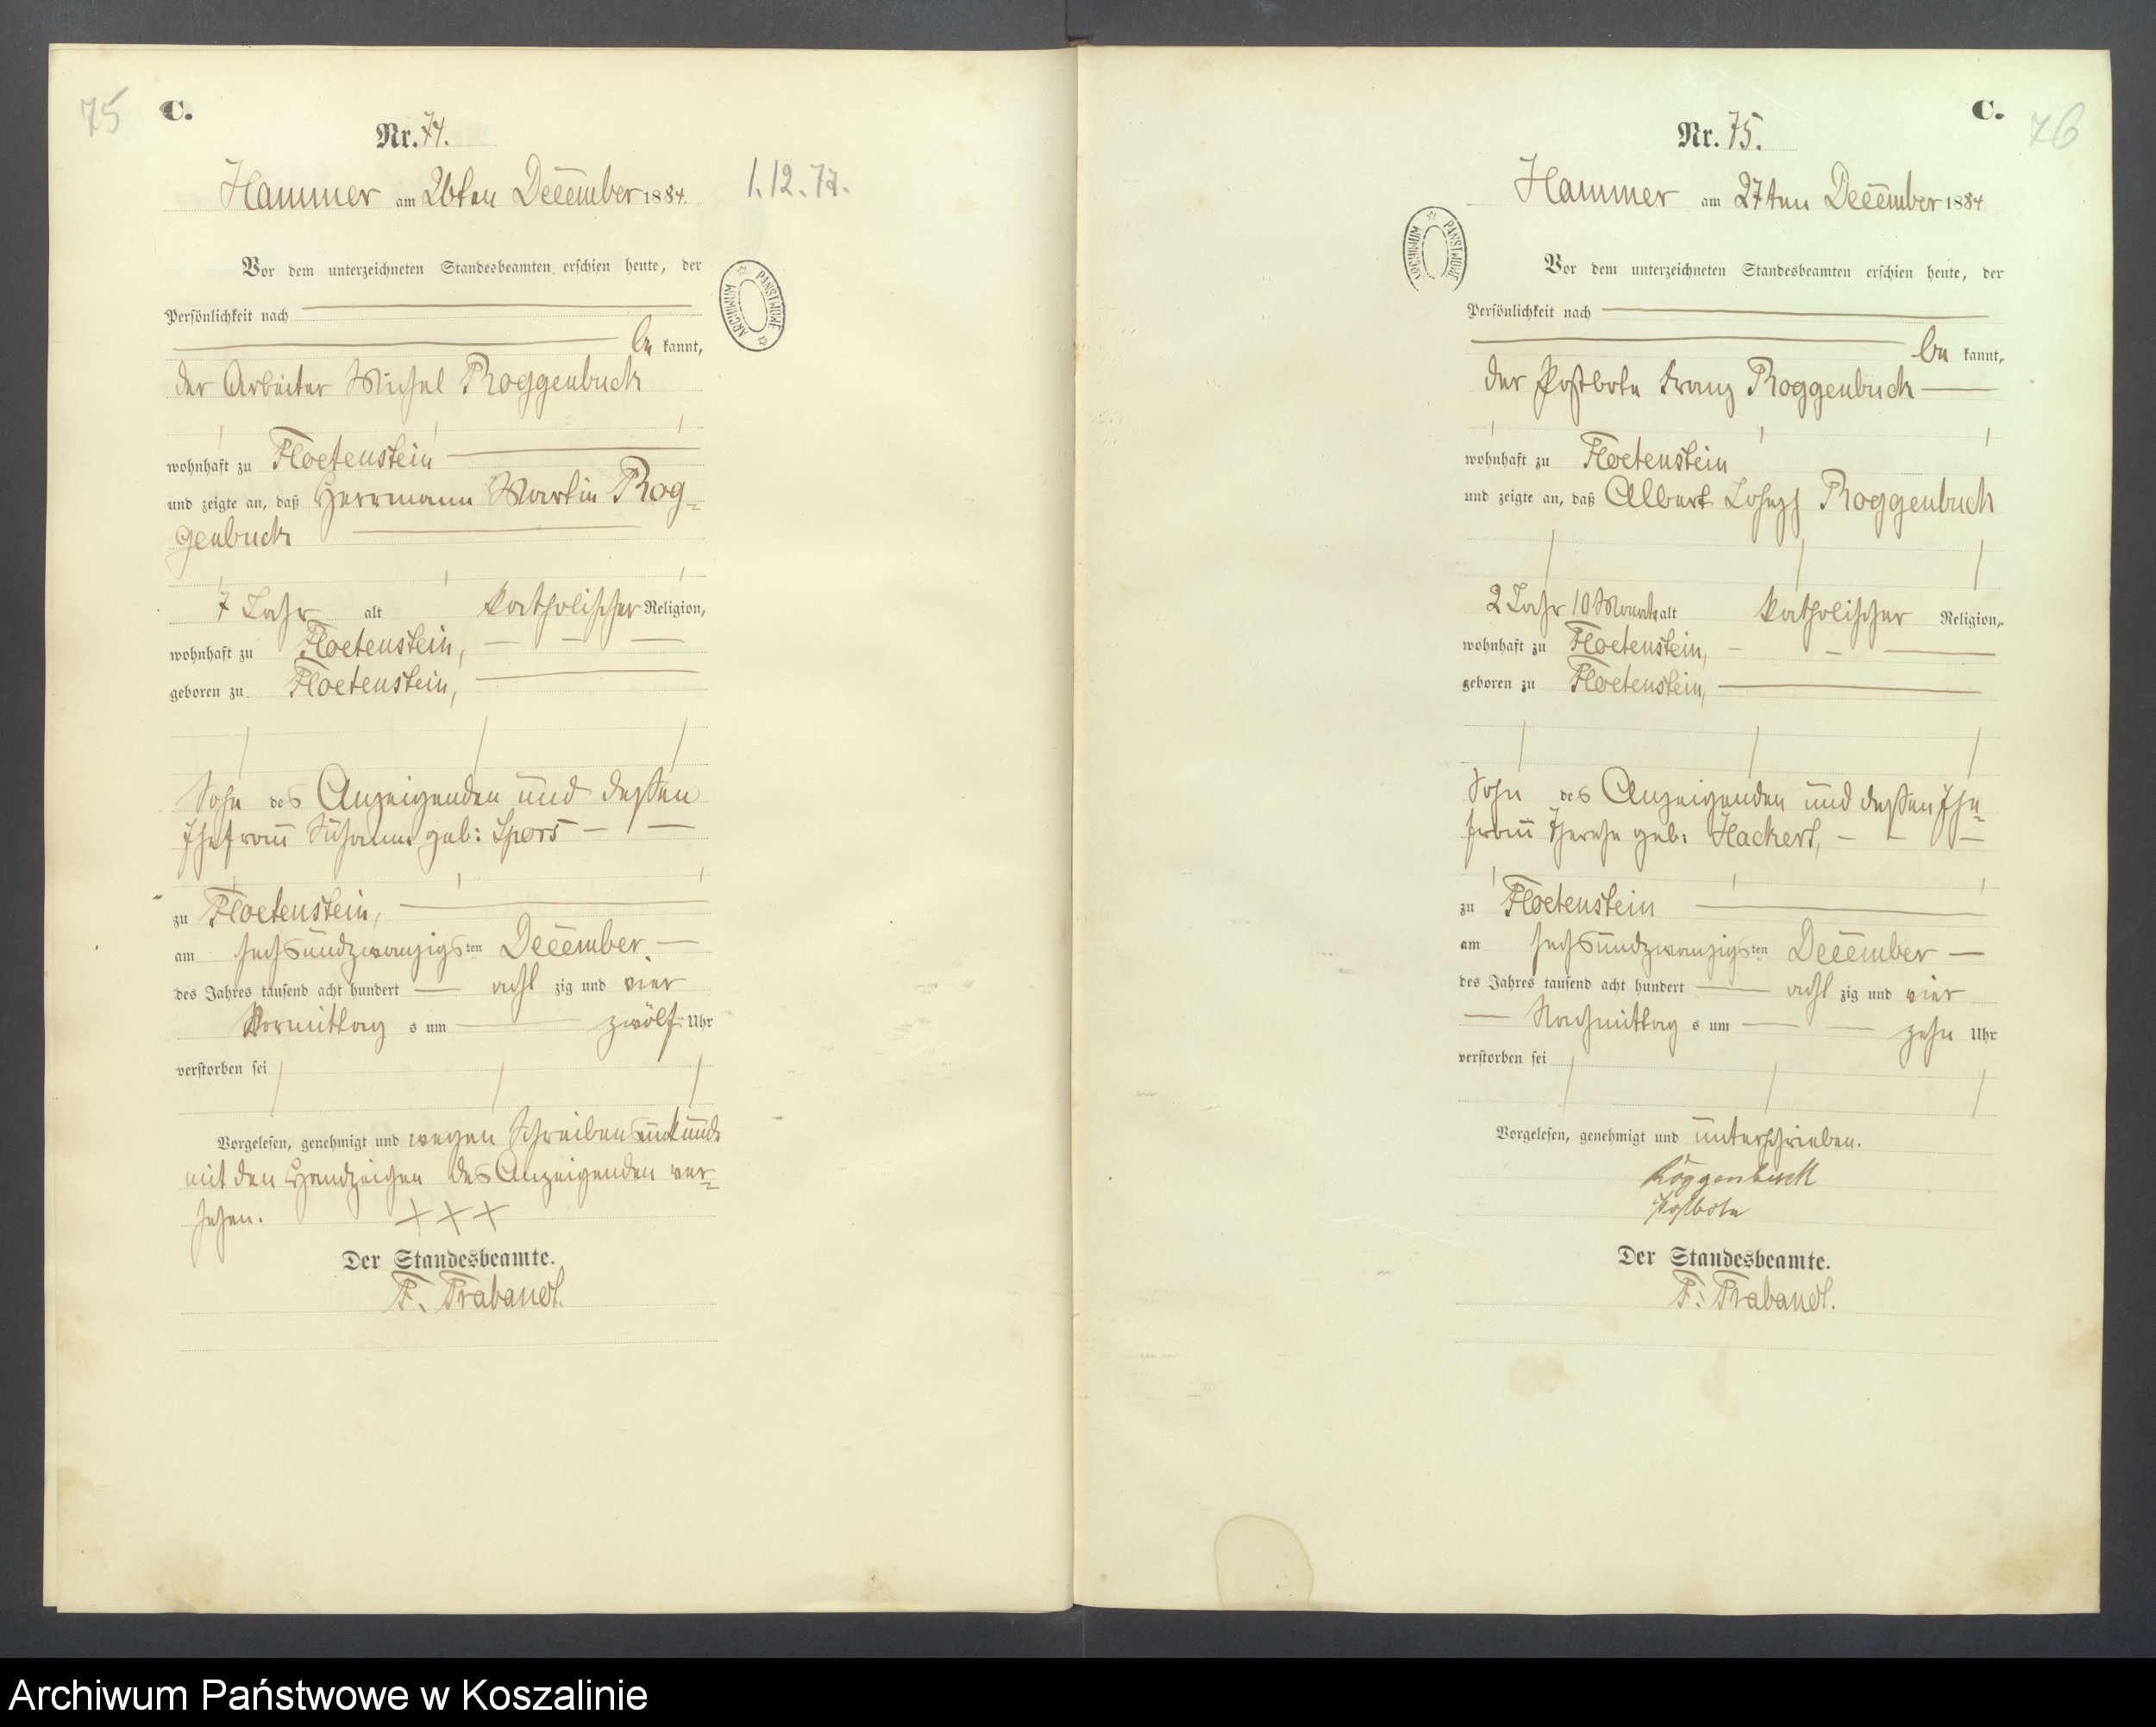 75
C.
Nr. 74.
1.12.77.
Hammer am 26ten December 1884.
Vor dem unterzeichneten Standesbeamten erschien heute, der
Persönlichkeit nach
be kannt,
der Arbeiter Michel Roggenbuck
wohnhaft zu Floetenstein
und zeigte an, daß Herrmann Martin Rog-
genbuck
7 Jahr alt katholischer Religion,
wohnhaft zu Floetenstein,
geboren zu Floetenstein,
Sohn des Anzeigenden und dessen
Ehefrau Susanna geb: Spors
zu Floetenstein,
am sechsundzwanzigsten December
des Jahres tausend acht hundert acht zig und vier
Vormittag s um zwölf Uhr
verstorben sei
Vorgelesen, genehmigt und wegen Schreibensunkunde
mit den Handzeichen des Anzeigenden ver-
sehen. XXX
Der Standesbeamte.
F. Trabandt.
ARCHIWUM PAŃSTWOWE
C.
76
Nr. 75.
Hammer am 27ten December 1884
Vor dem unterzeichneten Standesbeamten erschien heute, der
Persönlichkeit nach
be kannt,
der Postbote Franz Roggenbuck
wohnhaft zu Floetenstein
und zeigte an, daß Albert Joseph Roggenbuck
2 Jahr 10 Monate alt katholischer Religion,
wohnhaft zu Floetenstein,
geboren zu Floetenstein,
Sohn des Anzeigenden und dessen Ehe-
frau Therese geb: Hackert,
zu Floetenstein
am sechsundzwanzigsten December
des Jahres tausend acht hundert acht zig und vier
Nachmittag s um zehn Uhr
verstorben sei
Vorgelesen, genehmigt und unterschrieben.
Roggenbuck
Postbote
Der Standesbeamte.
F. Trabandt.
ARCHIWUM PAŃSTWOWE
Archiwum Państwowe w Koszalinie